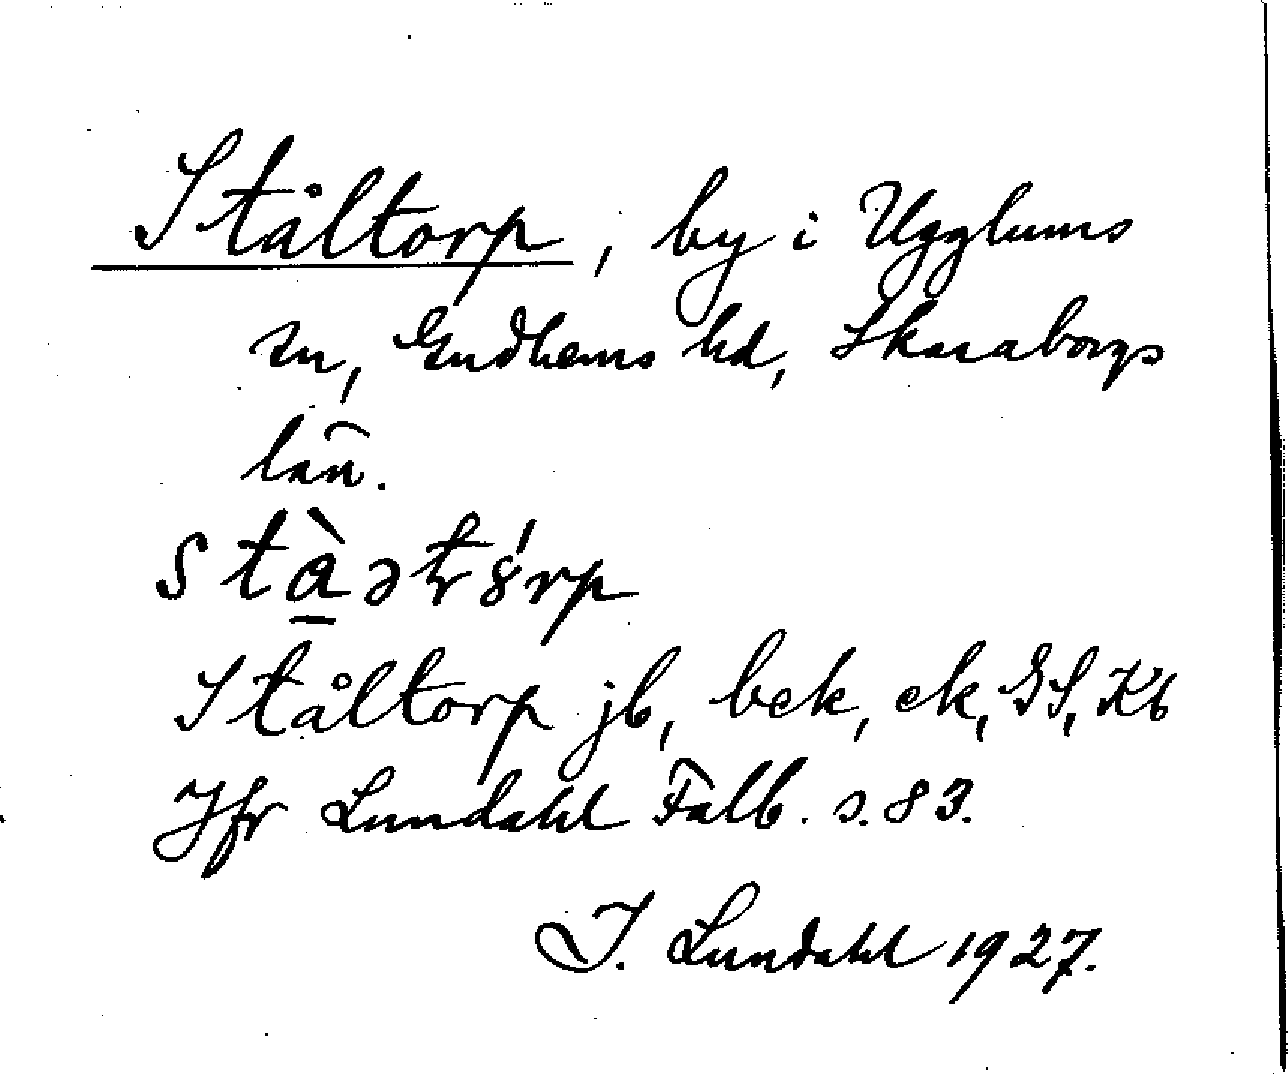 Ståltorp, by i Ugglums
sn, Gudhems hd, Skaraborgs
län.
Ståltorp jb, bek, ek, GS, Kb
Jfr Lundahl Falb. s. 83.
I. Lundahl 1927.